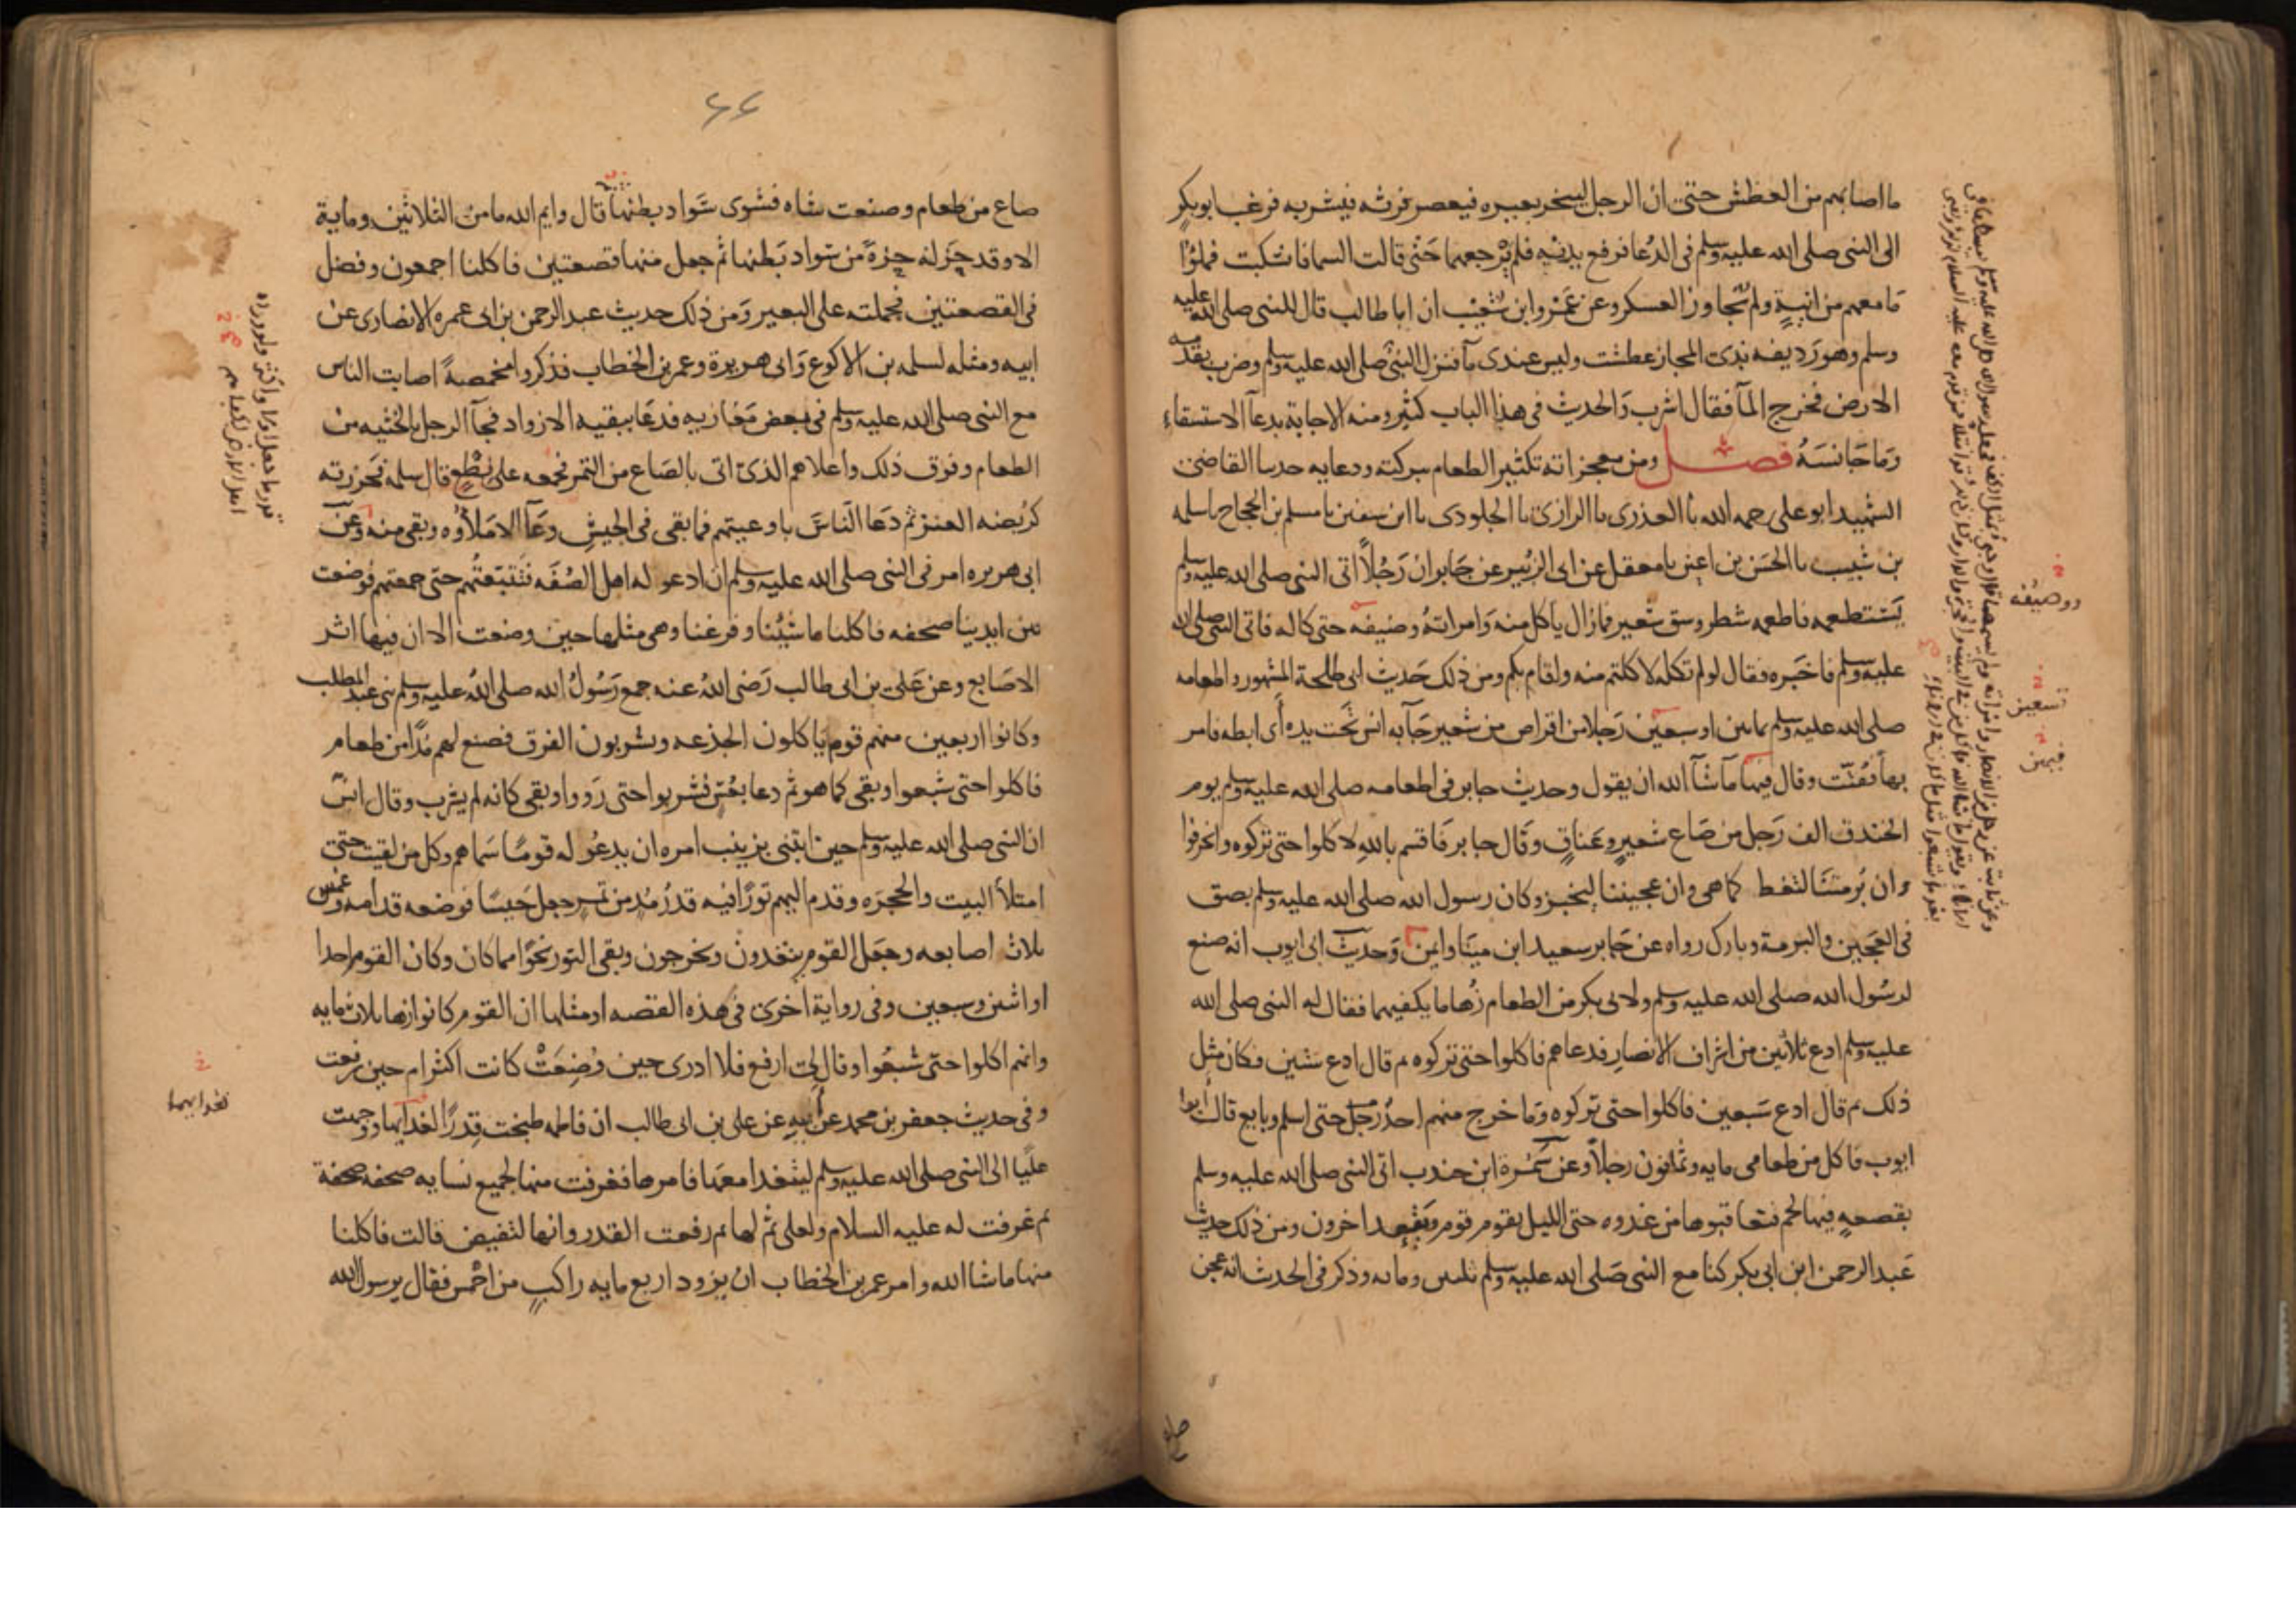 ما اصابهم من العطش حتى ان الرجل لينحر بعيره فيعصر فرثه فيشربه فرغب ابو بكر
الى النبى صلى الله عليه وسلم فى الدعا فرفع يديه فلم يرجعهما حتى قالت السما فانسكبت فملوا
ما معهم من انية ولم تجاوز العسكر وعن عمرو ابن شعيب ان ابا طالب قال للنبى صلى الله عليه
وسلم وهو رديفه بذى المجاز عطشت وليس عندى مآ فنزل النبى صلى الله عليه وسلم وضرب بقدمه
الارض فخرج المآ فقال اشرب والحديث فى هذا الباب كثير ومنه الاجابة بدعآ الاستسقاء
وما جانسه فصل ومن معجزاته تكثير الطعام ببركته ودعايه حدسا القاضى
الشهيد ابو على رحمه الله نا العذرى نا الرازى نا الجلودى نا ابن سفين نا مسلم بن الحجاج نا سلمه
بن شبيب نا الحسن بن اعين نا معقل عن ابى الزبير عن جابر ان رجلا اتى النبى صلى الله عليه وسلم
يستطعمه فاطعمه شطر وسق شعير فمازال ياكل منه وامراته وضيفه حتى كاله فاتى النبى صلى الله
عليه وسلم فاخبره فقال لو لم تكله لاكلتم منه ولقام بكم ومن ذلك حديث ابى طلحة المشهور واطعامه
صلى الله عليه وسلم ثمانين او سبعين رجلا من اقراص من شعير جآ به انس تحت يده أى ابطه فامر
بها ففتت وقال فيها ما شآ الله ان يقول وحديث جابر فى اطعامه صلى الله عليه وسلم يوم
الخندق الف رجل من صاع شعير وعناق وقال جابر فاقسم بالله لاكلوا حتى تركوه وانحرفوا
وان برمتنا لتغط كما هى وان عجيننا ليخبز وكان رسول الله صلى الله عليه وسلم بصق
فى العجين والبرمة وبارك رواه عن جابر سعيد ابن مينا وايمن وحديث ابى ايوب انه صنع
لرسول الله صلى الله عليه وسلم ولابى بكر من الطعام زهاما يكفيهما فقال له النبى صلى الله
عليه وسلم ادع ثلاثين من اشراف الانصار فدعاهم فاكلوا حتى تركوه ثم قال ادع ستين فكان مثل
ذلك ثم قال ادع سبعين فاكلوا حتى تركوه وما خرج منهم احد رجل حتى اسلم وبايع قال أبوا
ايوب فاكل من طعامى مايه وثمانون رجلا وعن سمرة ابن جندب اتى النبى صلى الله عليه وسلم
بقصعة فيها لحم فتعاقبوها من غدوه حتى الليل يقوم قوم ويقعد اخرون ومن ذلك حديث
عبد الرحمن ابن ابى بكر كنا مع النبى صلى الله عليه وسلم ثلثين ومائه وذكر فى الحديث انه عجن
ووضيفه
تسعين
فيهن
صاع
٤٤
صاع من طعام وصنعت شاه فشوى سواد بطنها قال وايم الله ما من الثلاثين وماية
الا وقد حز له حزة من سواد بطنها ثم جعل منها قصعتين فاكلنا اجمعون وفضل
فى القصعتين فحملته على البعير ومن ذلك حديث عبد الرحمن بن ابى عمره الانصارى عن
ابيه ومثله لسلمه بن الاكوع وابى هريرة وعمر بن الخطاب فذكروا مخمصة اصابت الناس
مع النبى صلى الله عليه وسلم فى بعض مغازيه فدعا ببقيه الازواد فجآ الرجل بالحثيه من
الطعام وفوق ذلك واعلاهم الذى اتى بالصاع من التمر فجمعه على نطع قال سلمه فحزرته
كربضه العنز ثم دعا الناس باوعيتهم فما بقى فى الجيش وعآ الا ملأوه وبقى منه وعن
ابى هريره امرنى النبى صلى الله عليه وسلم ان ادعو له اهل الصفه فتتبعتهم حتى جمعتهم فوضعت
بين ايدينا صحفه فاكلنا ما شينا وفرغنا وهى مثلها حين وضعت الا ان فيها اثر
الاصابع وعن على بن ابى طالب رضى الله عنه جمع رسول الله صلى الله عليه وسلم بنى عبد المطلب
وكانوا اربعين منهم قوم ياكلون الجذعه ويشربون الفرق فصنع لهم مدا من طعام
فاكلوا حتى شبعوا وبقى كما هو ثم دعا بعس فشربوا حتى رووا وبقى كانه لم يشرب وقال انس
ان النبى صلى الله عليه وسلم حين ابتنى بزينب امره ان يدعو له قوما سماهم وكل من لقيت حتى
امتلأ البيت والحجره وقدم اليهم تورا فيه قدر مد من تمر جعل حيسا فوضعه قدامه وغمس
ثلاث اصابعه وجعل القوم يتغدون ويخرجون وبقى التور نحوا مما كان وكان القوم احدا
او اثنين وسبعين وفى رواية اخرى فى هذه القصه او مثلها ان القوم كانوا زها ثلاث مايه
وانهم اكلوا حتى شبعوا وقال لى ارفع فلا ادرى حين وضعت كانت اكثر ام حين رفعت
وفى حديث جعفر بن محمد عن أبيه عن على بن ابى طالب ان فاطمه طبخت قدرا لغدايها ووجهت
عليا الى النبى صلى الله عليه وسلم ليتغدا معها فامرها فغرفت منها لجميع نسايه صحفه صحفة
ثم غرفت له عليه السلام ولعلى ثم لها ثم رفعت القدر وانها لتفيض قالت فاكلنا
منها ما شا الله وامر عمر بن الخطاب ان يزود اربع مايه راكب من احمس فقال يرسول الله
لغدايهما